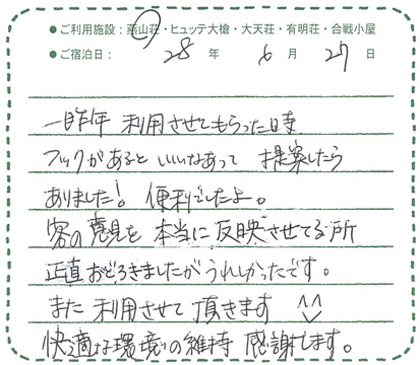 ●ご利用施設：燕山荘・ヒュッテ大槍・大天荘・有明荘・合戦小屋
●ご宿泊日： 28 年 6 月 27 日
一昨年 利用させてもらった時
フックがあると いいなあって 提案したら
ありました! 便利でしたよ。
客の意見を 本当に 反映させてる所
正直おどろきましたが うれしかったです。
また 利用させて 頂きます ^^
快適な環境の維持 感謝します。